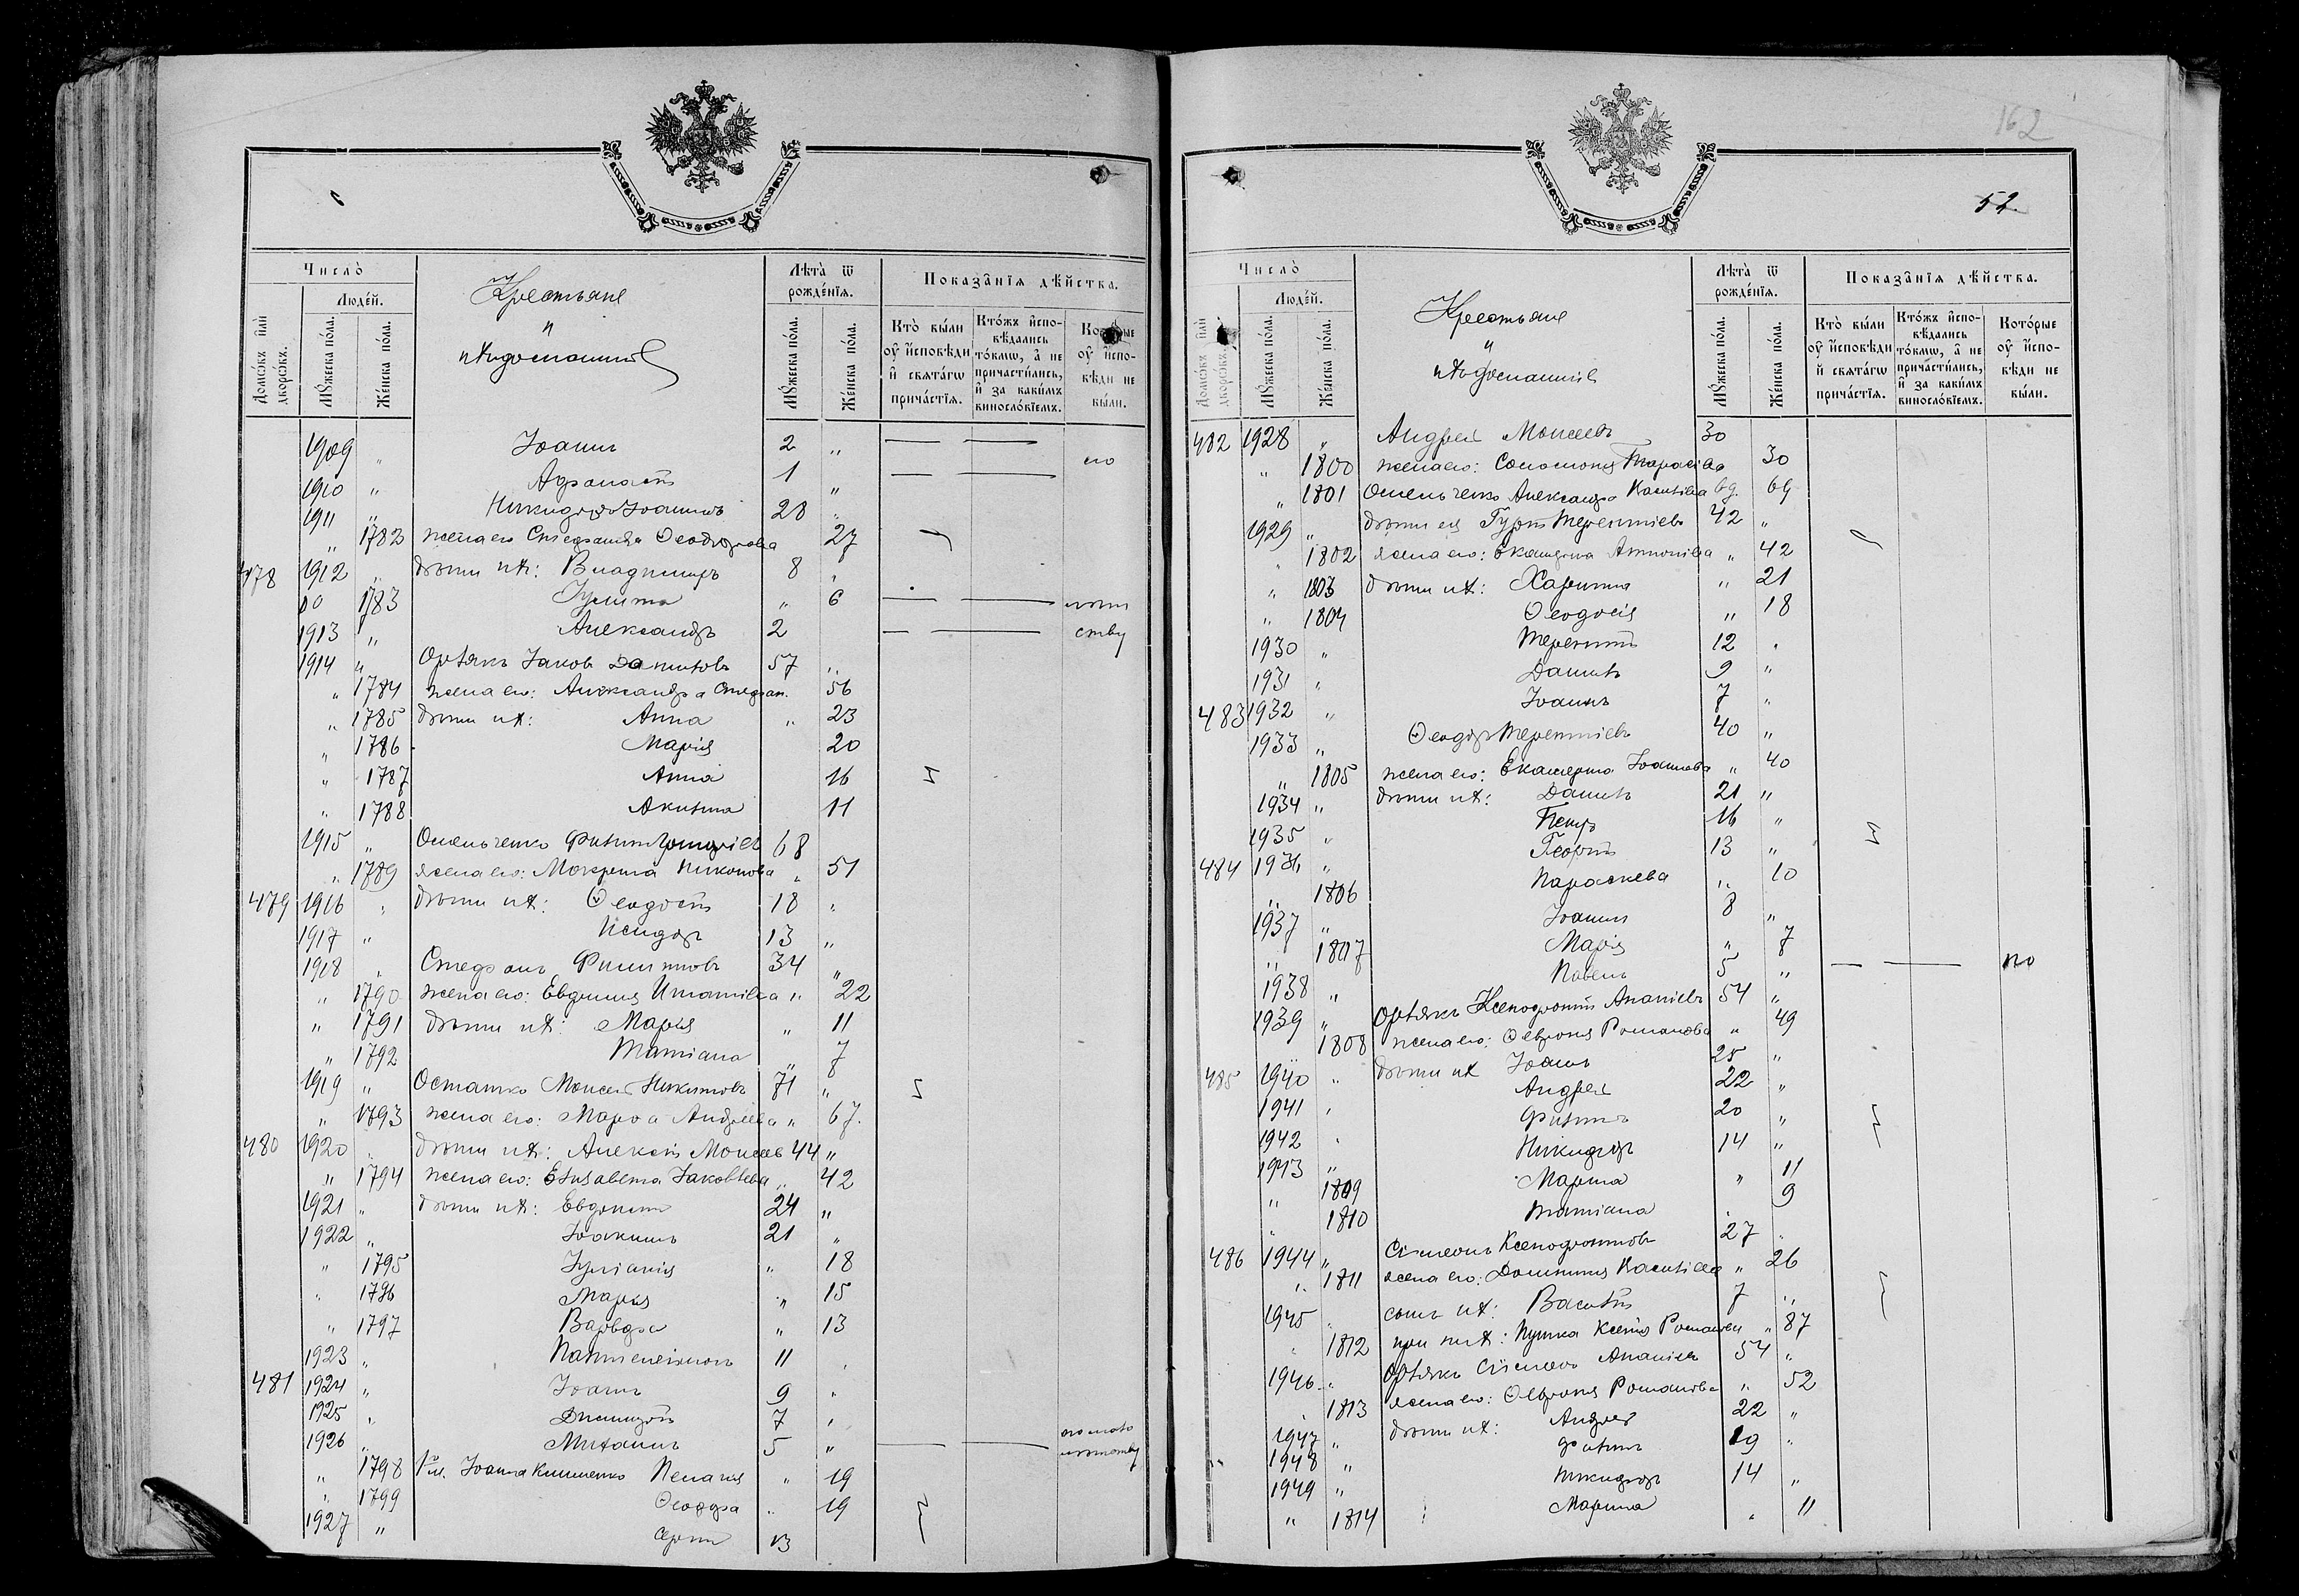 Число̀
Людéй.
Домо́въ и҆лѝ дворо́въ.
Мꙋ́жеска по́ла.
Же́нска по́ла.
Крестьяне
и
ихъ домашніе
Лѣта̀ ѿ рожде́нїѧ.
Мꙋ́жеска по́ла.
Же́нска по́ла.
Показа̂нїѧ дѣ́йства.
Кто̀ бы́ли оу҆ и҆сповѣ́ди и҆ свѧта́гѡ прича́стїѧ.
Кто́жъ и҆спо-вѣ́дались то́кмѡ, а҆ не причасти́лись, и҆ за каки́мъ винословїемъ.
Кото́рые оу҆ и҆спо-вѣ́ди не бы́ли.
1909 " Іоаннъ 2 " — —
1910 " Афанасій 1 " — — по
1911 " Никифоръ Іоанновъ 28 "
" 1782 жена его Стефанида Ѳеодорова 27
478 1912 " дѣти ихъ: Владиміръ 8 "
1783 Іулитта " 6 — —
1913 " Александръ 2 — — ству
1914 " Яковъ Даниловъ 57 "
" 1784 жена его: Александра Стефан. 56
" 1785 дѣти ихъ: Анна " 23
" 1786 Марія 20
" 1787 Анна 16
" 1788 Акилина 11
1915 " Омельченко Филиппъ 68
" 1789 жена его: Мокрина Никонова " 51
479 1916 " дѣти ихъ: Ѳеодосій 18 "
1917 " Исидоръ 13 "
1918 " Стефанъ Филипповъ 34 "
" 1790 жена его: Евфимія Игнатіева " 22
" 1791 дѣти ихъ: Марія " 11
" 1792 Татіана " 7
1919 " Осташко Моисей Никитовъ 71 "
" 1793 жена его: Марѳа Андреева " 67.
480 1920 " дѣти ихъ: Алексій Моисеевъ 44 "
" 1794 жена его: Елисавета Іаковлева " 42
1921 " дѣти ихъ: Евфимій 24 "
1922 " Іоакимъ 21 "
" 1795 Іуліанія " 18
" 1796 Марія " 15
" 1797 Варвара " 13
1923 " Пантелеимонъ 11 "
481 1924 " Іоаннъ 9 "
1925 " Димитрій 7 "
1926 " Михаилъ 5 " — —
" 1798 Іоанна Клименко Пелагія " 19
" 1799 Ѳеодора " 19
1927 " Сергій 13
162
52
Число̀
Людéй.
Домо́въ и҆лѝ дворо́въ.
Мꙋ́жеска по́ла.
Же́нска по́ла.
Крестьяне
и
ихъ домашніе
Лѣта̀ ѿ рожде́нїѧ.
Мꙋ́жеска по́ла.
Же́нска по́ла.
Показа̂нїѧ дѣ́йства.
Кто̀ бы́ли оу҆ и҆сповѣ́ди и҆ свѧта́гѡ прича́стїѧ.
Кто́жъ и҆спо-вѣ́дались то́кмѡ, а҆ не причасти́лись, и҆ за каки́мъ винословїемъ.
Кото́рые оу҆ и҆спо-вѣ́ди не бы́ли.
482 1928 " Андрей Моисеевъ 30
" 1800 жена его: Соломонія Тарасіева 30
" 1801 Омельченко Александра Василіева вд. 69
1929 " дѣти ея Гурій Терентіевъ 42 "
" 1802 жена его: Екатерина Антоніева " 42
" 1803 дѣти ихъ: Харитина " 21
" 1804 Ѳеодосія " 18
1930 " Терентій 12 "
1931 " Даніилъ 9 "
483 1932 " Іоаннъ 7 "
1933 " Ѳеодоръ Терентіевъ 40 "
" 1805 жена его: Екатерина Іоаннова " 40
1934 " дѣти ихъ: Даніилъ 21 "
1935 " Петръ 16 "
484 1936 " Георгій 13 "
" 1806 Параскева " 10
1937 " Іоаннъ 8 "
" 1807 Марія " 7
1938 " Павелъ 5 " — — по
1939 " Ксенофонтъ Ананіевъ 54 "
1808 жена его: Ѳевронія Романова " 49
485 1940 " дѣти ихъ Іоаннъ 25 "
1941 " Андрей 22 "
1942 " Филиппъ 20 "
1943 " Никифоръ 14 "
" 1809 Марина " 11
" 1810 Татіана " 9
486 1944 " Сѵмеонъ Ксенофонтовъ 27 "
" 1811 жена его: Домникія Василіева " 26
1945 " сынъ ихъ: Василій 7 "
" 1812 при нихъ: Ксенія Романова " 87
1946 " Сѵмеонъ Ананіевъ 54 "
" 1813 жена его: Ѳевронія Романова " 52
1947 " дѣти ихъ: Андрей 22 "
1948 " Филиппъ 19 "
1949 " Никифоръ 14 "
" 1814 Марина " 11